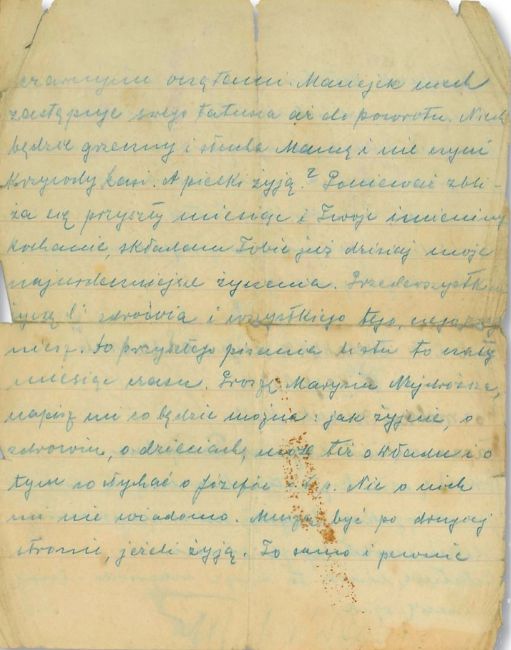 czarnymi oczętami. Maciejek niech
zastępuje swego tatusia aż do powrotu. Niech
będzie grzeczny i słucha Mamę i nie czyni
krzywdy Kasi. A pieski żyją? Ponieważ zbli-
ża się przyszły miesiąc i Twoje imieniny
kochanie, składam Tobie już dzisiaj moje
najserdeczniejsze życzenia. Przedewszystkim
życzę Ci zdrowia i wszystkiego tego, czego
niesz. Do przyszłego pisania listu to cały
miesiąc czasu. Proszę Marysiu Najdroższa,
napisz mi co będzie można: jak żyjecie, o
zdrowiu, o dzieciach, może też o Władziu i o
tym co słychać o Józefie i. Nic o nich
mi nie wiadomo. Muszą być po drugiej
stronie, jeżeli żyją. To samo i pewnie